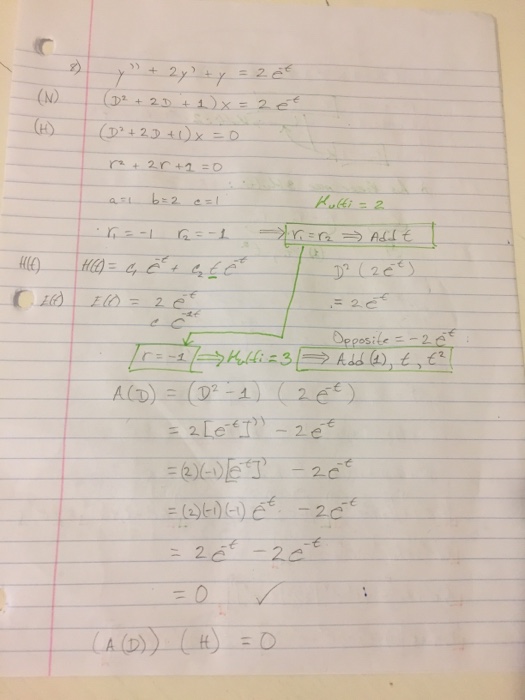 8) y'' + 2y' + y = 2e^-t
(N) (D² + 2D + 1)x = 2e^-t
(H) (D² + 2D + 1)x = 0
r² + 2r + 1 = 0
a=1 b=2 c=1 Multi = 2
r₁ = -1 r₂ = -1 ⇒ r₁ = r₂ ⇒ Add t
H(t) H(t) = c₁ e^-t + c₂ t e^-t D² (2e^-t)
E(t) E(t) = 2e^-t = 2e^-t
Opposite = -2e^-t
r = -1 ⇒ Multi = 3 ⇒ Add (1), t, t²
A(D) = (D² - 1) (2e^-t)
= 2[e^-t]'' - 2e^-t
= (2)(-1)[e^-t]' - 2e^-t
= (2)(-1)(-1) e^-t - 2e^-t
= 2e^-t - 2e^-t
= 0 ✓
(A(D)) (H) = 0